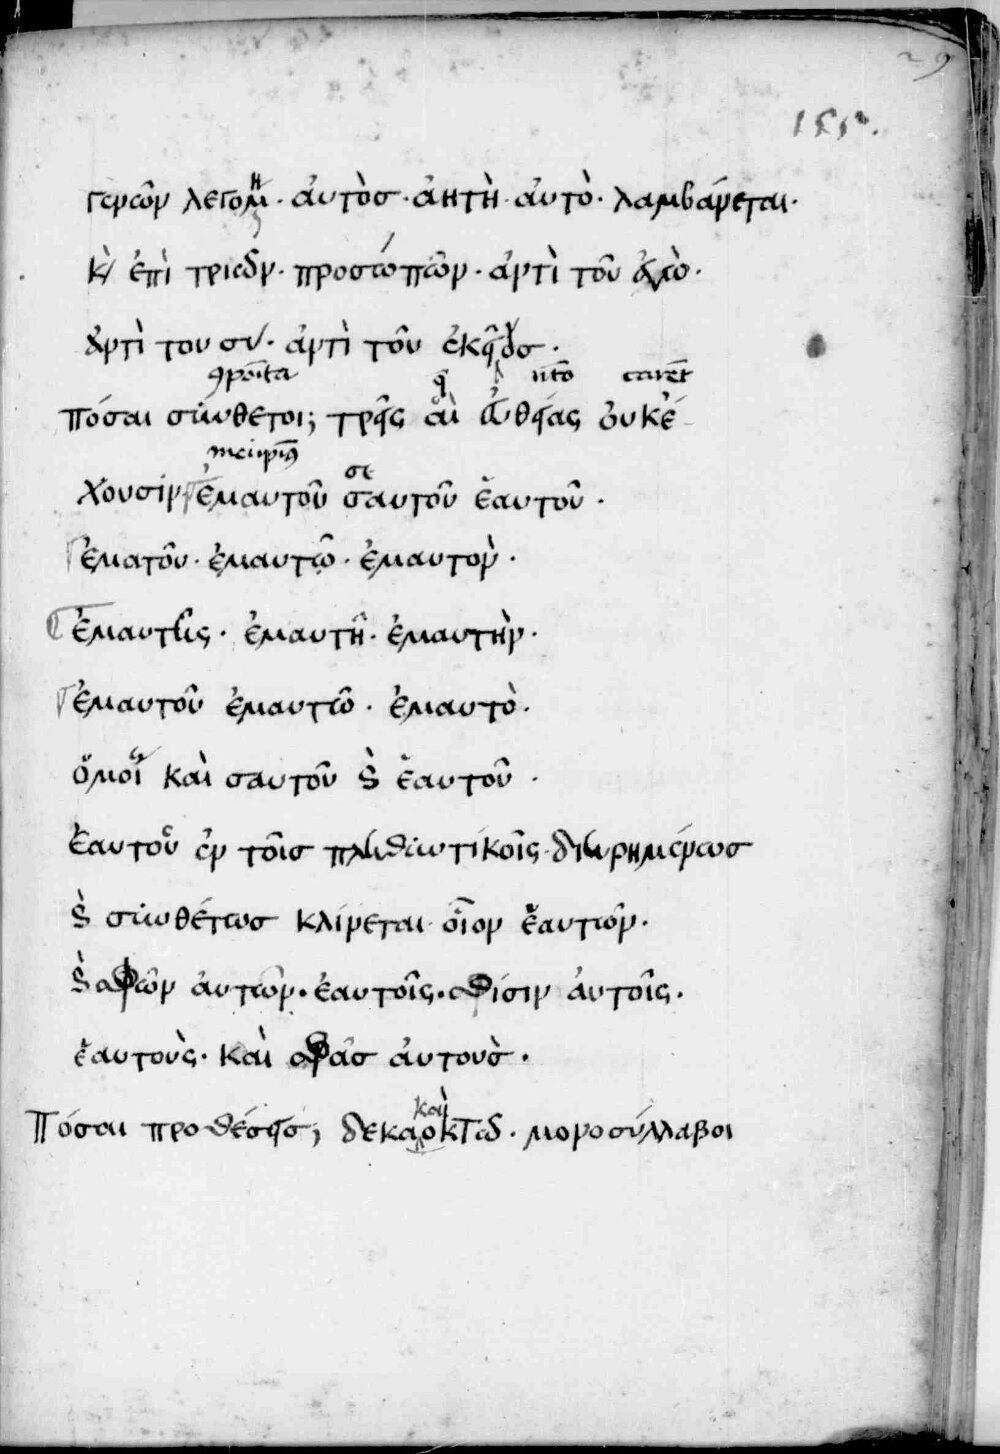 29
155.
γενῶν λεγομ̅η · ἀυτὸσ · ἀητὴ · ἀυτὸ · λαμβάνεται ·
κ̀ ἐπὶ τριῶν · προσώπων · ἀντὶ τοῦ
ἀντὶ του συ · ἀντὶ τοῦ ἐκεῖνοσ ·
πόσαι σύνθετοι; τρεῖς αἳ ἐυθείας ὀυκ ἐ
χουσίν ἐμαυτοῦ σαυτοῦ ἑαυτοῦ ·
ἐματοῦ · ἐμαυτῶ · ἐμαυτον ·
ἐμαυτῆς · ἐμαυτῆ · ἐμαυτὴν ·
ἐμαυτοῦ ἐμαυτῶ · ἐμαυτὸ ·
ὅμοι καὶ σαυτοῦ κ̀ ἑαυτοῦ ·
ἑαυτοῦ ἐν τοῖσ πληθυντικοῖς · διηρημένωσ
κ̀ συνθέτωσ κλίνεται · οἷον ἑαυτῶν ·
κ̀ σφῶν ἀυτῶν · ἑαυτοῖς · σφίσιν ἀυτοῖς ·
ἑαυτοὺς · καὶ σφᾶσ ἀυτουσ̀ ·
Πόσαι προθέσεισ; δεκαοκτώ · μονοσύλλαβοι